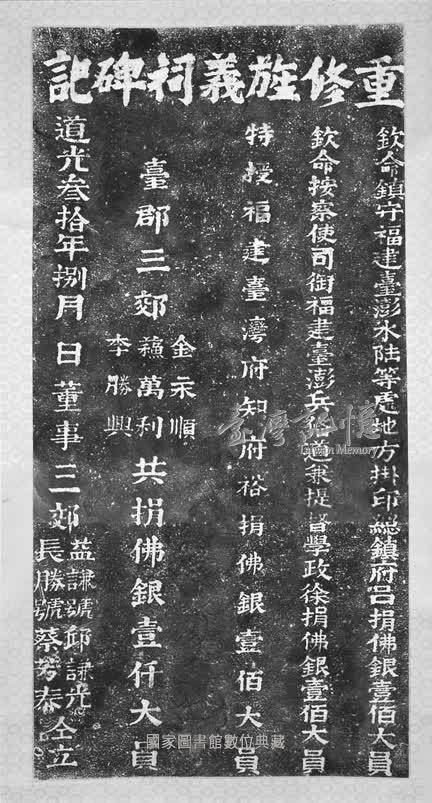 重修旌義祠碑記
欽命鎮守福建臺澎水陸等處地方掛印總鎮府呂捐佛銀壹佰大員
欽命按察使司銜福建臺澎兵俻道兼提督學政徐捐佛銀壹佰大員
特授福建臺灣府知府裕捐佛銀壹佰大員
臺郡三郊
金永順
蘇萬利
李勝興
共捐佛銀壹仟大員
道光叄拾年捌月 日董事三郊
益謙號邱謙光
長勝號蔡芳泰
仝立
臺灣記憶
Taiwan Memory
國家圖書館數位典藏